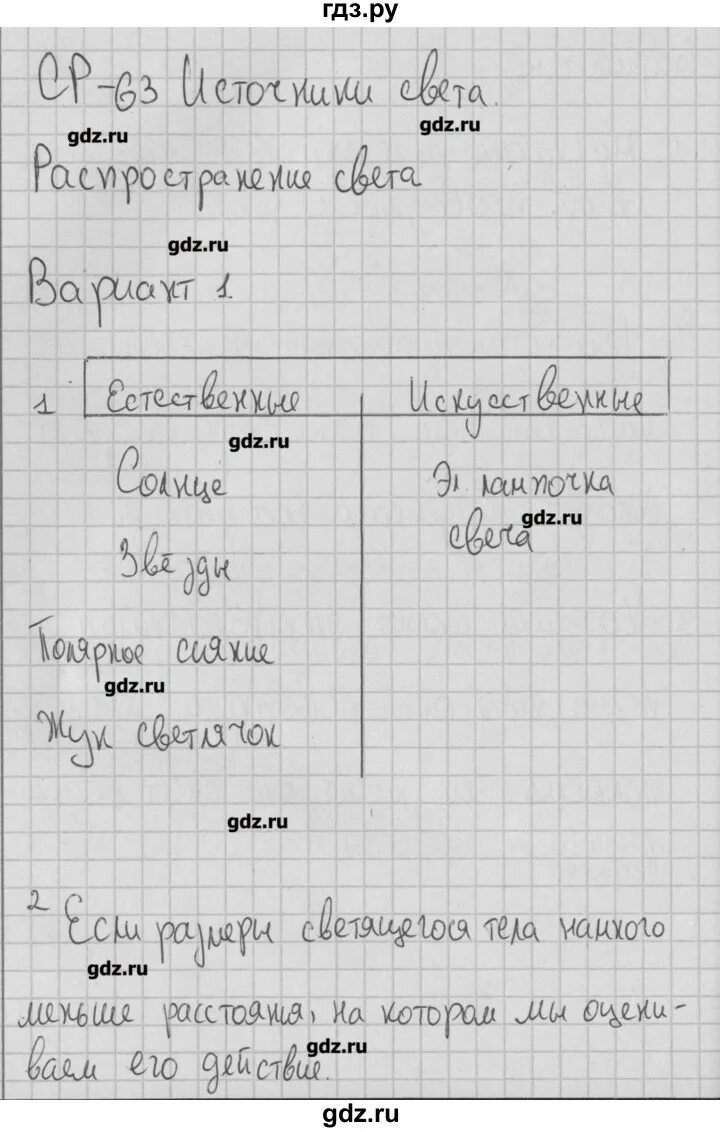 гдз.ру
СР-63 Источники света.
gdz.ru
gdz.ru
Распространение света
gdz.ru
Вариант 1.
1 Естественные Искусственные
gdz.ru
Солнце Эл. лампочка
gdz.ru
Звёзды свеча
Полярное сияние
gdz.ru
Жук светлячок
gdz.ru
2 Если размеры светящегося тела намного
gdz.ru
меньше расстояния, на котором мы оцени-
gdz.ru
ваем его действие.
gdz.ru